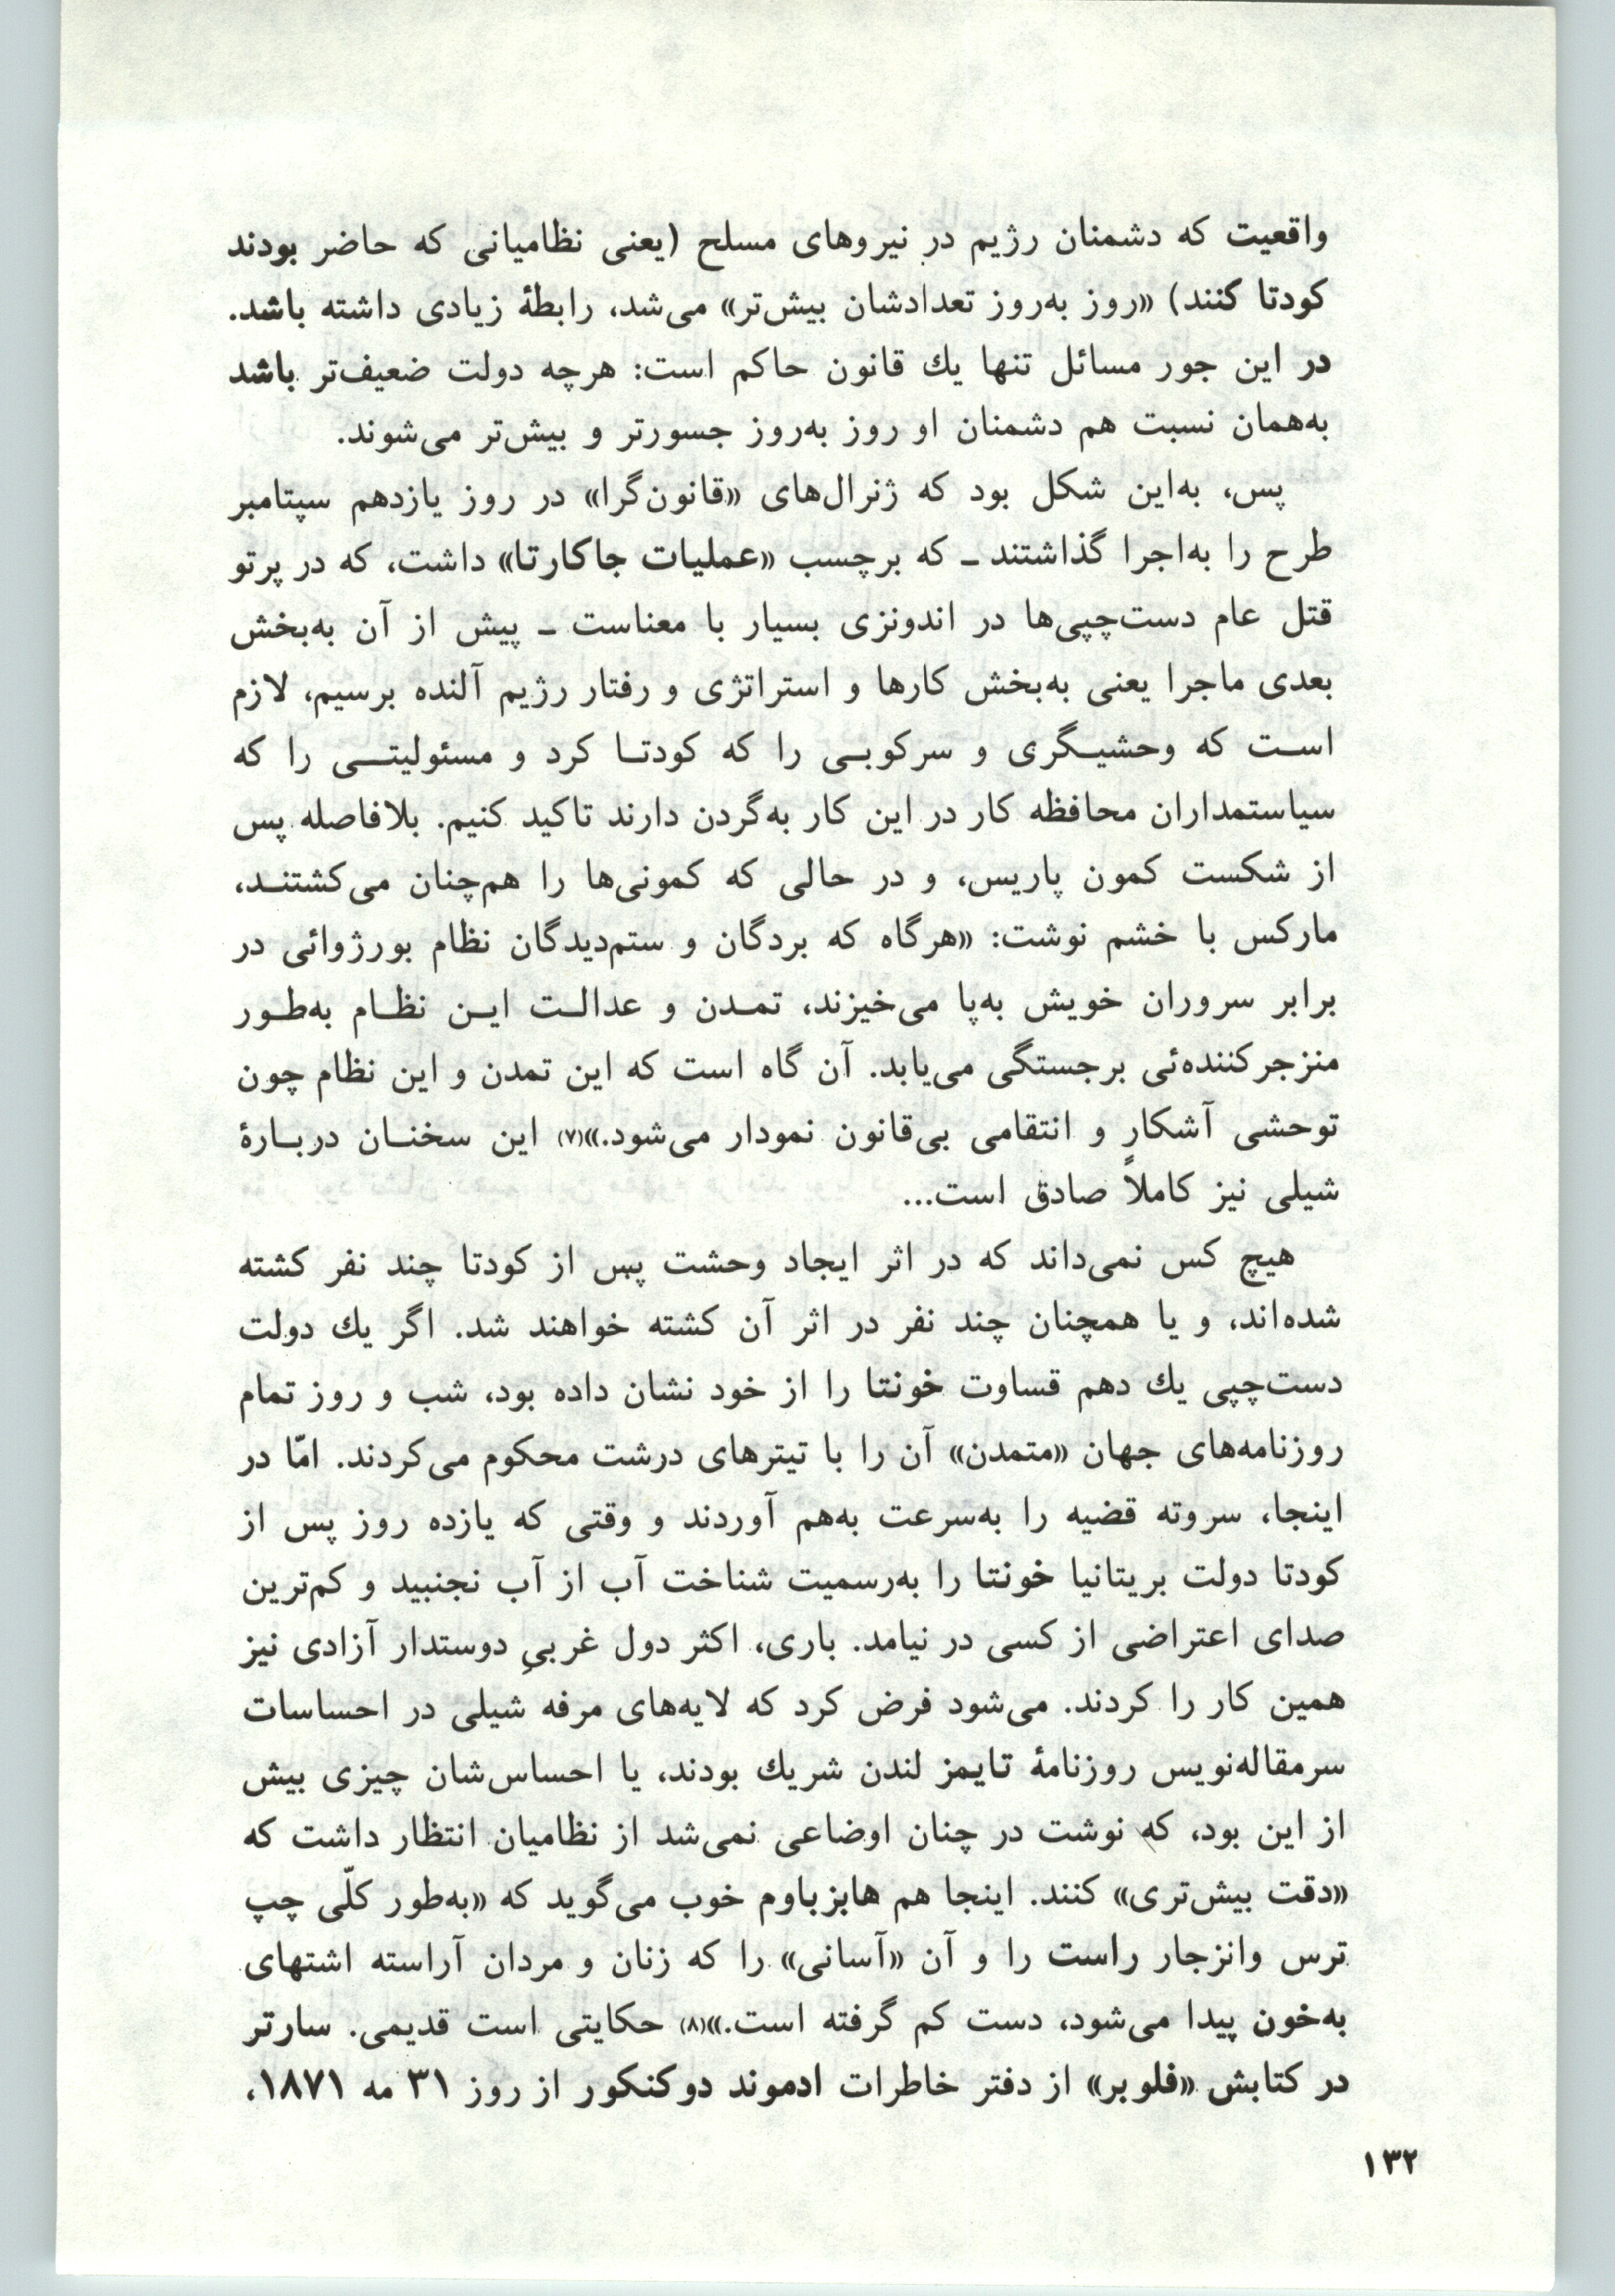 واقعیت که دشمنان رژیم در نیروهای مسلح (یعنی نظامیانی که حاضر بودند
کودتا کنند) «روز به‌روز تعدادشان بیش‌تر» می‌شد، رابطهٔ زیادی داشته باشد.
در این جور مسائل تنها یك قانون حاکم است: هرچه دولت ضعیف‌تر باشد
به‌همان نسبت هم دشمنان او روز به‌روز جسورتر و بیش‌تر می‌شوند.
پس، به‌این شکل بود که ژنرال‌های «قانون‌گرا» در روز یازدهم سپتامبر
طرح را به‌اجرا گذاشتند ـ که برچسب «عملیات جاکارتا» داشت، که در پرتو
قتل عام دست‌چپی‌ها در اندونزی بسیار با معناست ـ پیش از آن به‌بخش
بعدی ماجرا یعنی به‌بخش کارها و استراتژی و رفتار رژیم آلنده برسیم، لازم
اسـت که وحشیـگری و سرکوبـی را که کودتـا کرد و مسئولیتـی را که
سیاستمداران محافظه کار در این کار به‌گردن دارند تاکید کنیم. بلافاصله پس
از شکست کمون پاریس، و در حالی که کمونی‌ها را هم‌چنان می‌کشتنـد،
مارکس با خشم نوشت: «هرگاه که بردگان و ستم‌دیدگان نظام بورژوائی در
برابر سروران خویش به‌پا می‌خیزند، تمـدن و عدالـت ایـن نظـام به‌طـور
منزجرکننده‌ئی برجستگی می‌یابد. آن گاه است که این تمدن و این نظام چون
توحشی آشکار و انتقامی بی‌قانون نمودار می‌شود.»(۷) این سخنـان دربـارهٔ
شیلی نیز کاملاً صادق است...
هیچ کس نمی‌داند که در اثر ایجاد وحشت پس از کودتا چند نفر کشته
شده‌اند، و یا همچنان چند نفر در اثر آن کشته خواهند شد. اگر یك دولت
دست‌چپی یك دهم قساوت خونتا را از خود نشان داده بود، شب و روز تمام
روزنامه‌های جهان «متمدن» آن را با تیترهای درشت محکوم می‌کردند. امّا در
اینجا، سروته قضیه را به‌سرعت به‌هم آوردند و وقتی که یازده روز پس از
کودتا دولت بریتانیا خونتا را به‌رسمیت شناخت آب از آب نجنبید و کم‌ترین
صدای اعتراضی از کسی در نیامد. باری، اکثر دول غربیِ دوستدار آزادی نیز
همین کار را کردند. می‌شود فرض کرد که لایه‌های مرفه شیلی در احساسات
سرمقاله‌نویس روزنامهٔ تایمز لندن شریك بودند، یا احساس‌شان چیزی بیش
از این بود، که نوشت در چنان اوضاعی نمی‌شد از نظامیان انتظار داشت که
«دقت بیش‌تری» کنند. اینجا هم هابزباوم خوب می‌گوید که «به‌طور کلّی چپ
ترس وانزجار راست را و آن «آسانی» را که زنان و مردان آراسته اشتهای
به‌خون پیدا می‌شود، دست کم گرفته است.»(۸) حکایتی است قدیمی. سارتر
در کتابش «فلوبر» از دفتر خاطرات ادموند دوکنکور از روز ۳۱ مه ۱۸۷۱،
۱۳۲